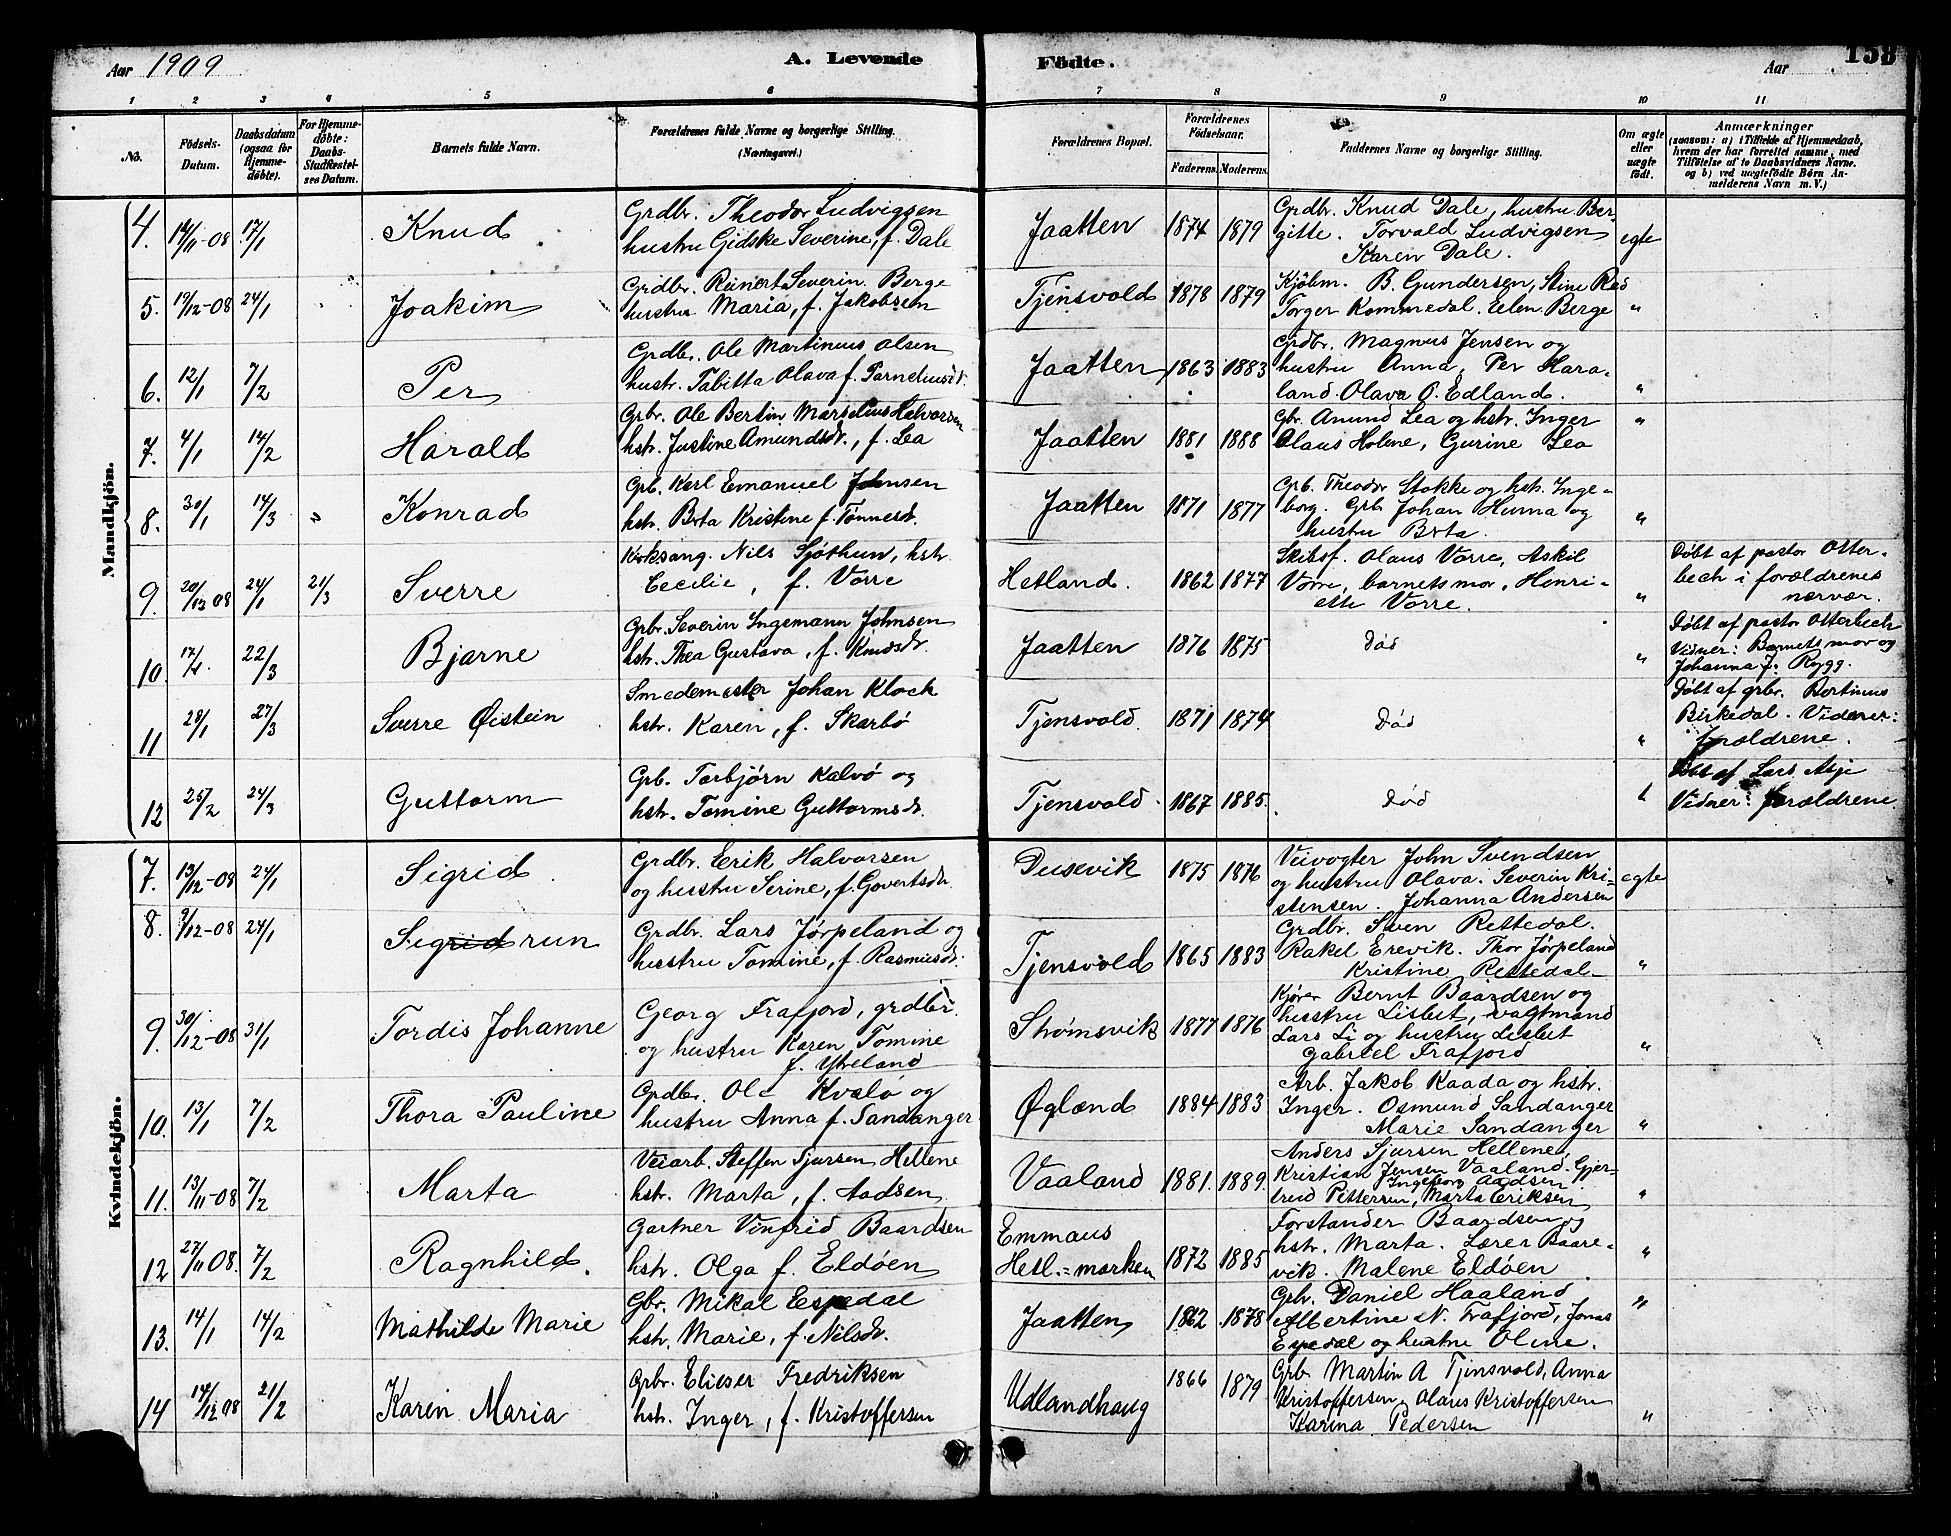 Aar 1909
A. Levende
Födte.
Aar
153
1 2 3 4 5 6 7 8 9 10 11
No.
Födsels-
Datum.
Daabsdatum
(ogsaa for
Hjemme-
döbte).
For Hjemme-
döbte:
Daabs-
Stadfæstel-
ses Datum.
Barnets fulde Navn.
Forældrenes fulde Navne og borgerlige Stilling.
(Næringsvei.)
Forældrenes Bopæl.
Forældrenes
Födselsaar.
Faderens. Moderens.
Faddernes Navne og borgerlige Stilling.
Om ægte
eller
uægte
födt.
Anmærkninger
(saasom: a) i Tilfælde af Hjemmedaab,
hvem der har forrettet samme, med
Tilföielse af to Daabsvidners Navne.
og b) ved uægtefödte Börn An-
melderens Navn m.V.)
Mandkjön.
4. 14/11-08 17/1 Knud
Grdbr. Theodor Ludvigsen
hustru Gidske Severine, f. Dale
Jaatten 1874 1879
Grdbr. Knud Dale, hustru Ber-
gitte. Torvald Ludvigsen
Karen Dale.
egte
5. 19/12-08 24/1 Joakim
Grdbr. Reinert Severin Berge
hustru Maria, f. Jakobsen
Tjensvold 1878 1879
Kjöbm. B. Gundersen, Stine
Torger Kommedal. Elen Berge
"
6. 12/1 7/2 Per
Grdbr. Ole Martinus Olsen
hustr. Tabitta Olava f.
Jaatten 1863 1883
Grdbr. Magnus Jensen og
hustru Anna, Per Hara-
land. Olava O. Edland.
"
7. 4/1 14/2 Harald
Grbr. Ole Bertin Marselius Halvorsen
hstr. Justine Amundsdr., f. Lea
Jaatten 1881 1888
Gbr. Amund Lea og hstr. Inger
Olaus Holene, Gurine Lea
"
8. 30/1 14/3 " Konrad
Grb. Karl Emanuel Johnsen
hstr. Brta Kristine f. Tönnesdr.
Jaatten 1871 1877
Grb. Theodor Stokke og hstr. Inge-
borg. Grb Johan Huma og
hustru Brta.
"
9. 20/12 08 24/1 21/3 Sverre
Nils Sjöthun, hstr.
Cecilie, f. Vorre
Hetland. 1862 1877
Skibsf. Olaus Vorre, Askil
Vorre, barnets mor, Henri-
ette Vorre.
"
Döbt af pastor Otter-
bech i forældrenes
nærvær.
10 22/3 Bjarne
Grbr. Severin Ingemann Johnsen
hstr. Thea Gustava, f. Knudsdr.
Jaatten 1876 1875
Död
"
Döbt af pastor Otterbech
Vidner: Barnets mor og
Johanna J. Rygg.
11 28/1 27/3 Sverre Øistein
Smedemester Johan Kloch
hstr. Karen, f. Skarbö
Tjensvold. 1871 1874
Död
"
Döbt af grbr. Bertinus
Birkedal. Vidner:
forældrene.
12 25/2 24/3 Guttorm
Grb. Torbjörn Kalvö og
hstr. Tomine Guttormsdr.
Tjensvold. 1867 1885.
Död
"
Döbt af Lars Asje
Vidner: forældrene
Kvindekjön.
7. 13/12-08 24/1 Sigrid
Grdbr. Eerik Halvorsen
og hustru Serine, f. Govertsdr.
Dusevik 1875 1876
Veivogter John Svendsen
og hustru Olava. Severin Kri-
stensen. Johanna Andersen
egte
8. 9/12-08 24/1 Sigridrun
Grdbr. Lars Jörpeland og
hustru Tomine, f. Rasmusdr.
Tjensvold 1865 1883
Grdbr. Sven Rettedal.
Rakel Erevik. Thor Jörpeland
Kristine Rettedal
"
9. 30/12-08 31/1 Tordis Johanne
Georg Frafjord, grdbr.
og hustru Karen Tomine
f. Ytreland
Strömsvik 1877 1876
Kjörer Bernt Baardsen og
hustru Lisbet, vagtmand
Lars Li og hustru Lisbet
Gabriel Frafjord
"
10. 13/1 7/2 Thora Pauline
Grdbr. Ole Kvalö og
hustru Anna f. Sandanger
Øglænd 1884 1883
Arb. Jakob Kaada og hstr.
Inger. Osmund Sandanger
Marie Sandanger
"
11. 13/11-08 7/2 Marta
Veiarb. Steffen Sjursen Hellene
hstr. Marta, f. Aadsen
Vaaland 1881. 1889.
Anders Sjursen Hellene,
Kristian Jensen Vaaland. Gjer-
Ingeborg Aadsen.
trud Pettersen, Marta Eriksen
"
12 27/11 08. 7/2 Ragnhild.
Gartner Vinfrid Baardsen
hstr. Olga f. Eldöen
Emmaus
Hetl.=marken 1872 1885
Forstander Baardsen og
hstr. Marta. Lærer Baare-
vik. Malene Eldöen
"
13. 14/1 14/2 Mathilde Marie
Gbr. Mikal Espedal
hstr. Marie, f. Nilsdr.
Jaatten 1862 1878
Grbr. Daniel Haaland
Albertine N. Frafjord, Jonas
Espedal og hustru Oline.
"
14 14/12 08 21/2 Karen Maria
Grbr. Elieser Fredriksen
hstr. Inger, f. Kristoffersen
Udlandhaug 1866 1879
Grb. Martin A Tjensvold, Anna
Kristoffersen, Olaus Kristoffersen
Karina Pedersen
"